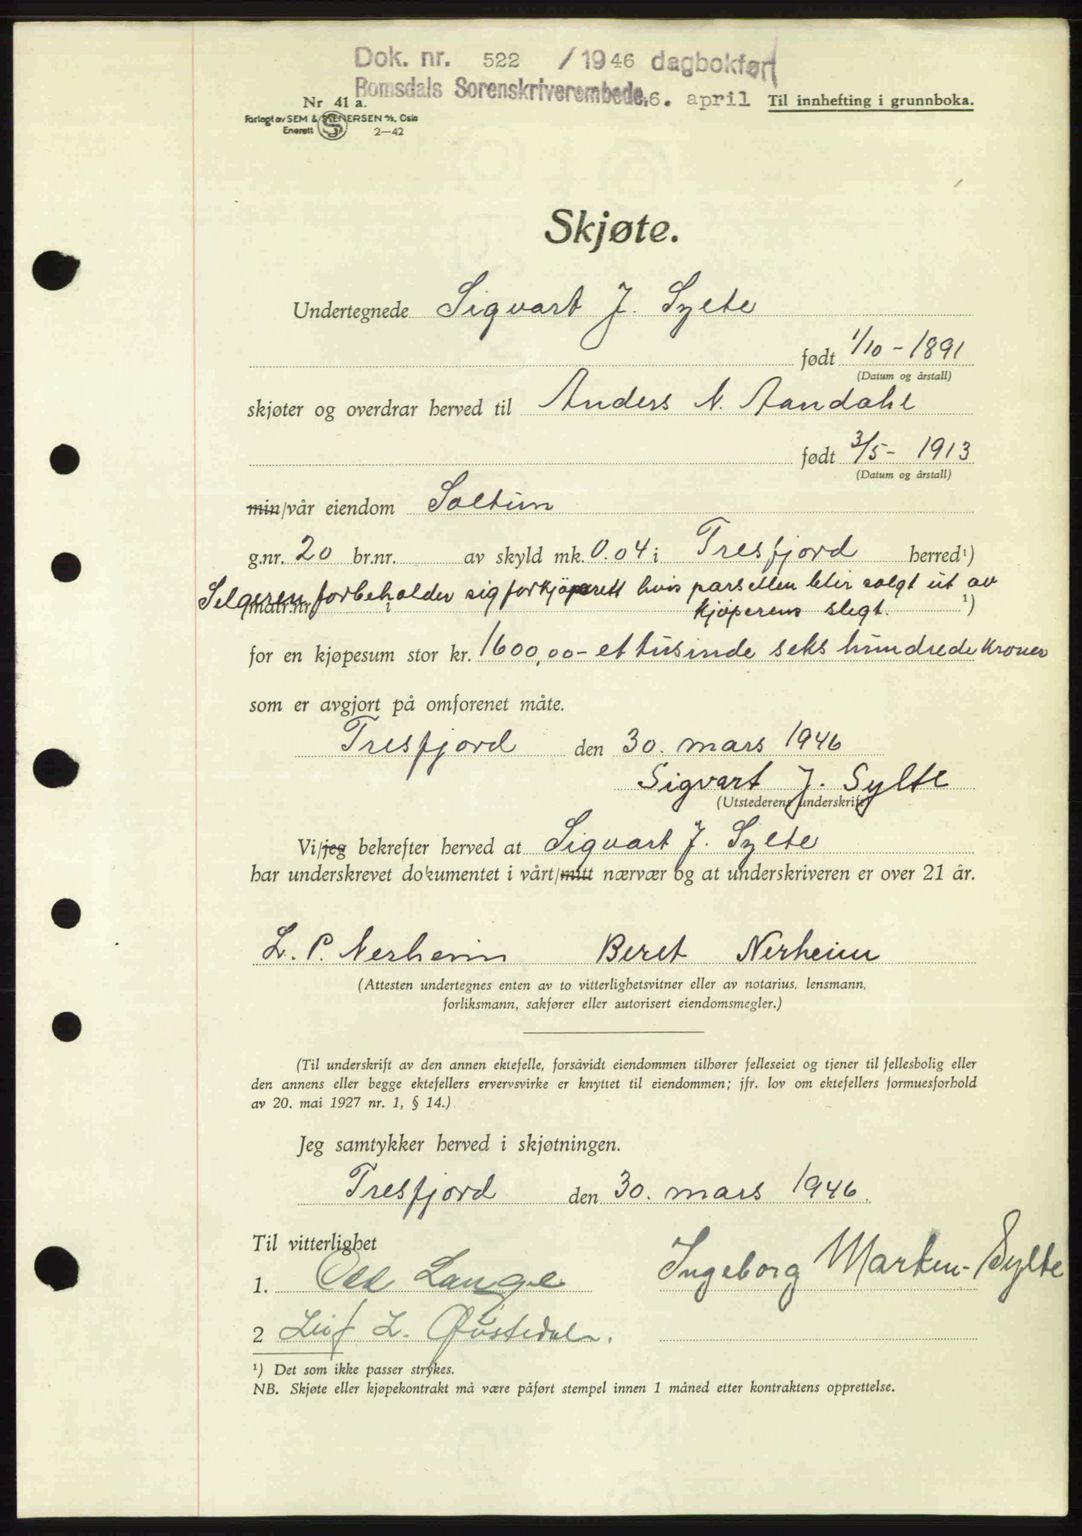 Dok. nr. 522 /1946 dagbokført
Romsdals Sorenskriverembede, 6. april
Til innhefting i grunnboka.
Nr 41 a.
Forlagt av SEM & STENERSEN A/S, Oslo
Enerett 2—42
Skjøte.
Undertegnede Sigvart J. Sylte
født 1/10 - 1891
(Datum og årstall)
skjøter og overdrar herved til Anders N. Aandahl
født 3/5 - 1913
(Datum og årstall)
min/vår eiendom Soltun
g.nr. 20 br.nr. av skyld mk. 0.04 i Tresfjord herred¹)
Selgeren forbeholder sig forkjøpsrett hvis parsellen blir solgt ut av
matr.nr. i kjøperens slegt. ¹)
for en kjøpesum stor kr. 1600,00 - et tusinde seks hundrede kroner
som er avgjort på omforenet måte.
Tresfjord den 30. mars 1946
Sigvart J. Sylte
(Utstederens underskrift)
Vi/jeg bekrefter herved at Sigvart J. Sylte
har underskrevet dokumentet i vårt/mitt nærvær og at underskriveren er over 21 år.
L. P. Nerheim Beret Nerheim
(Attesten undertegnes enten av to vitterlighetsvitner eller av notarius, lensmann,
forliksmann, sakfører eller autorisert eiendomsmegler.)
(Til underskrift av den annen ektefelle, forsåvidt eiendommen tilhører felleseiet og tjener til fellesbolig eller
den annens eller begge ektefellers ervervsvirke er knyttet til eiendommen; jfr. lov om ektefellers formuesforhold
av 20. mai 1927 nr. 1, § 14.)
Jeg samtykker herved i skjøtningen.
Tresfjord den 30. mars 1946.
Til vitterlighet
1. Lange Ingeborg Marken-Sylte
2 Leif L. Øvstedal.
¹) Det som ikke passer strykes.
NB. Skjøte eller kjøpekontrakt må være påført stempel innen 1 måned etter kontraktens opprettelse.